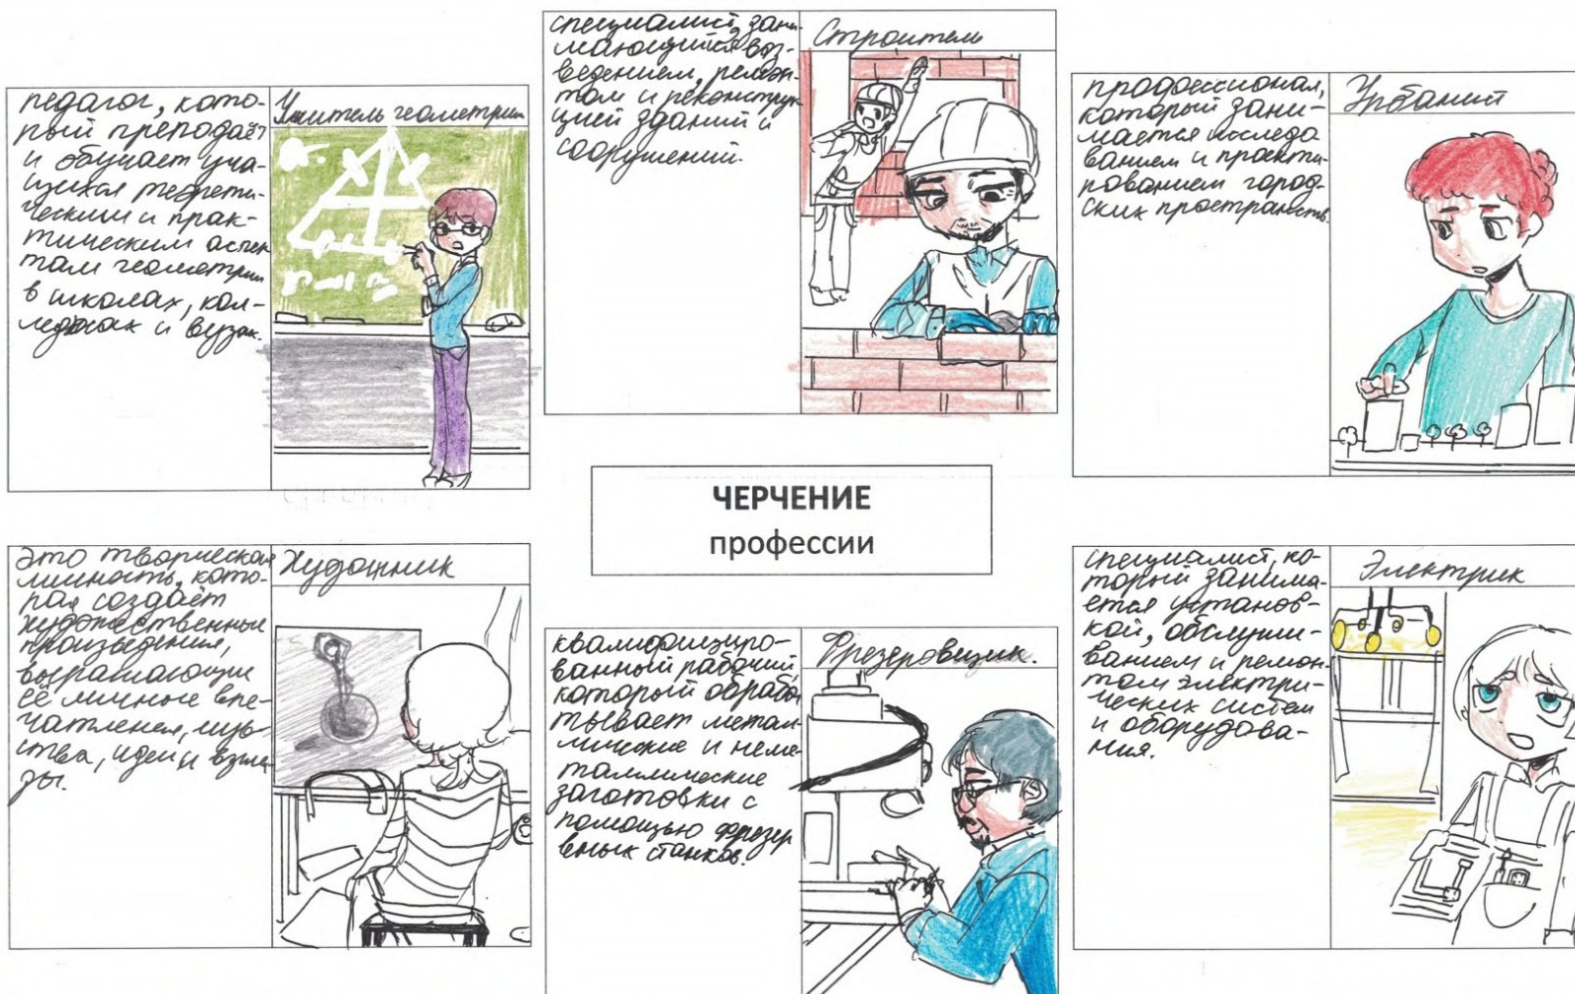 педагог, кото-
рый преподаёт
и обучает уча-
щихся теорети-
ческим и прак-
тическим аспек
там геометрии
в школах, кол-
леджах и вузах.
Учитель геометрии
специалист, зани-
мающийся воз-
ведением, ремон-
том и реконструк
цией зданий и
сооружений.
Строитель
профессионал,
который зани-
мается исследо
ванием и проекти-
рованием город-
ских пространств.
Урбанист
ЧЕРЧЕНИЕ
профессии
это творческая
личность, кото-
рая создаёт
художественные
произведения,
выражающие
её личные впе-
чатления, чувс-
тва, идеи и взгля
ды.
Художник
квалифициро-
ванный рабочий,
который обраба
тывает метал-
лические и неме
таллические
заготовки с
помощью фрезер
вных станков.
Фрезеровщик.
специалист, ко-
торый занима-
ется установ-
кой, обслужи-
ванием и ремон-
том электри-
ческих систем
и оборудова-
ния.
Электрик